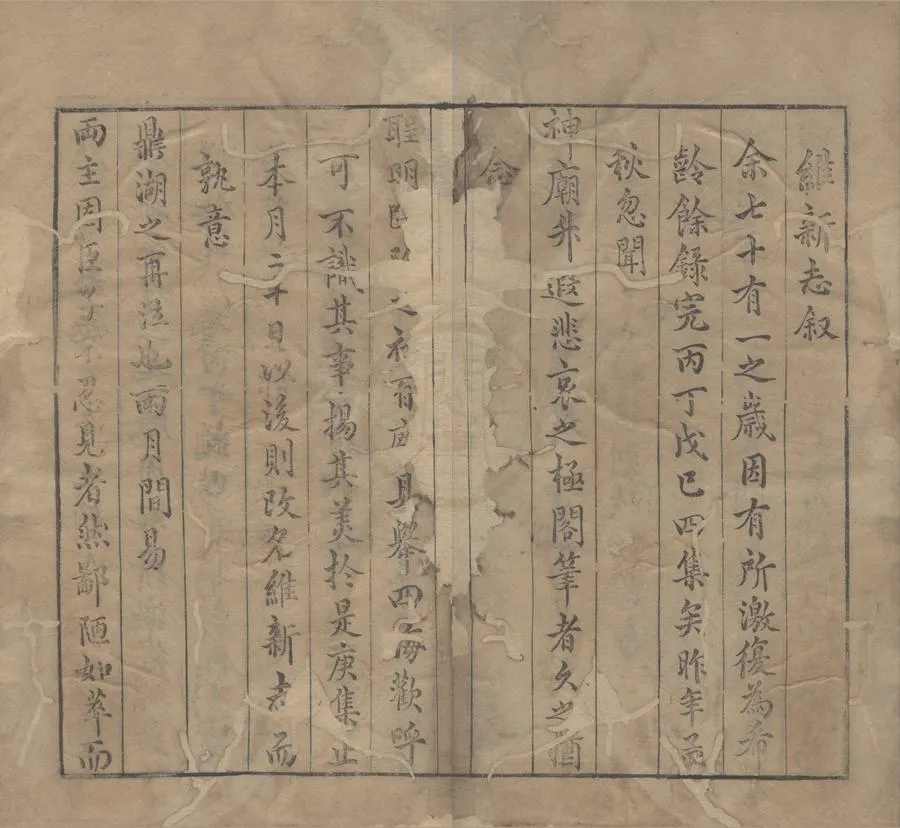 維新志叙
余七十有一之歳因有所激復為希
齡餘録完丙丁戊己四集矣昨年孟
秋忽聞
神廟升遐悲哀之極閣筆者久之猶
念
聖明 之初百 具舉四海歡呼
可不識其事揚其美於是庚集止
本月二十日以後則改名維新志而
孰意
鼎湖之再泣也兩月間易
兩主因臣 不忍見者然鄙陋如萃而